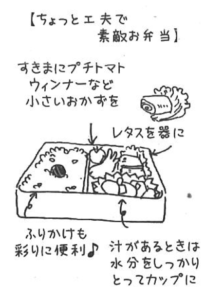 【ちょっと工夫で
素敵お弁当】
すきまにプチトマト
ウィンナーなど
小さいおかずを
レタスを器に
ふりかけも
彩りに便利♪
汁があるときは
水分をしっかり
とってカップに